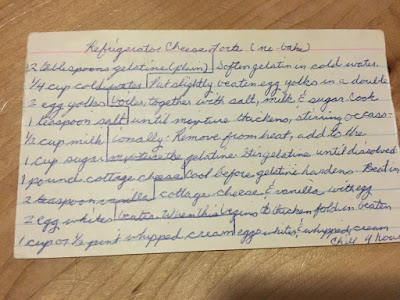 Refrigerator Cheese Torte (no-bake)
2 tablespoons gelatine (plain) Soften gelatin in cold water.
1/4 cup cold water Put slightly beaten egg yolks in a double
2 egg yolks boiler, together with salt, milk & sugar. Cook
1 teaspoon salt until mixture thickens, stirring occas-
1/2 cup milk ionally. Remove from heat, add to the
1 cup sugar gelatine. Stir gelatine until dissolved
1 pound cottage cheese Cool before gelatine hardens. Beat in
2 teaspoon vanilla cottage cheese & vanilla with egg
2 egg whites beater. When this begins to thicken fold in beaten
1 cup or 1/2 pint whipped cream egg whites & whipped cream
Chill 4 hours